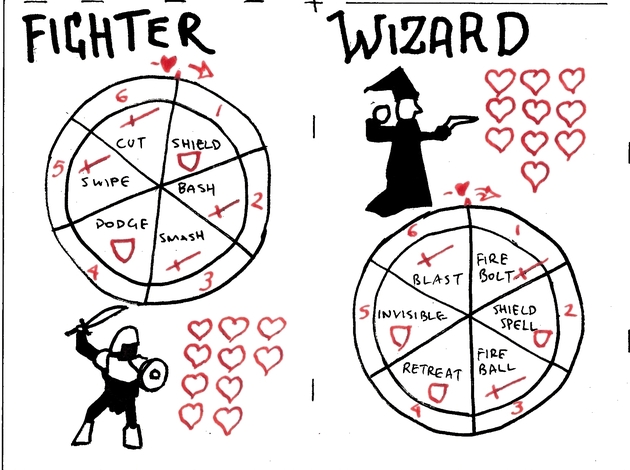 FIGHTER
6
1
CUT
SHIELD
5
SWIPE
BASH
2
DODGE
SMASH
4
3
WIZARD
6
1
BLAST
FIRE
BOLT
5
INVISIBLE
SHIELD
SPELL
2
RETREAT
FIRE
BALL
4
3